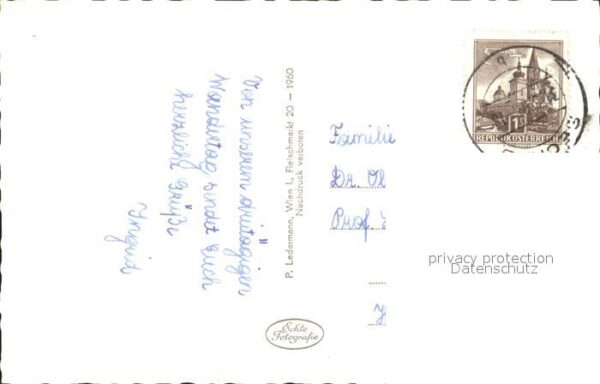 Von unserem dritägigen
Wandertag sendet Euch
herzliche Grüße
Ingrid
P. Ledermann, Wien I., Fleischmarkt 20 – 1960
Nachdruck verboten
Echte
Fotografie
Familie
Dr. Ol
Prof.
1S
REPUBLIK ÖSTERREICH
privacy protection
Datenschutz